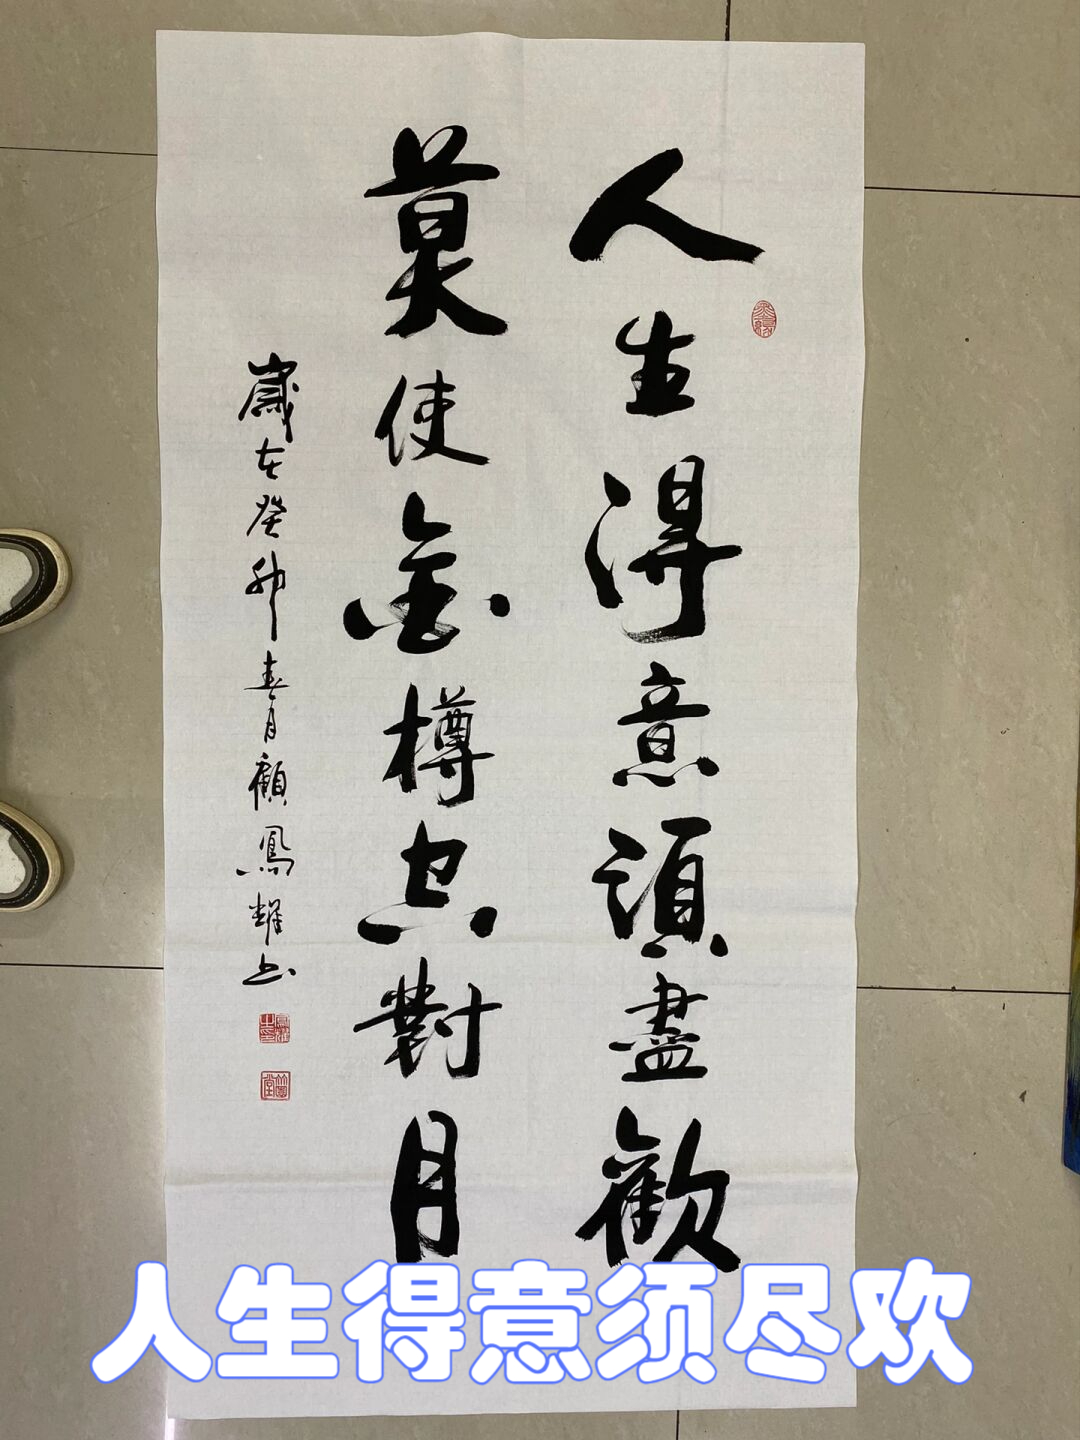 人生得意須盡歡
莫使金樽空對月
歲在癸卯春月顧鳳耀书
人生得意须尽欢